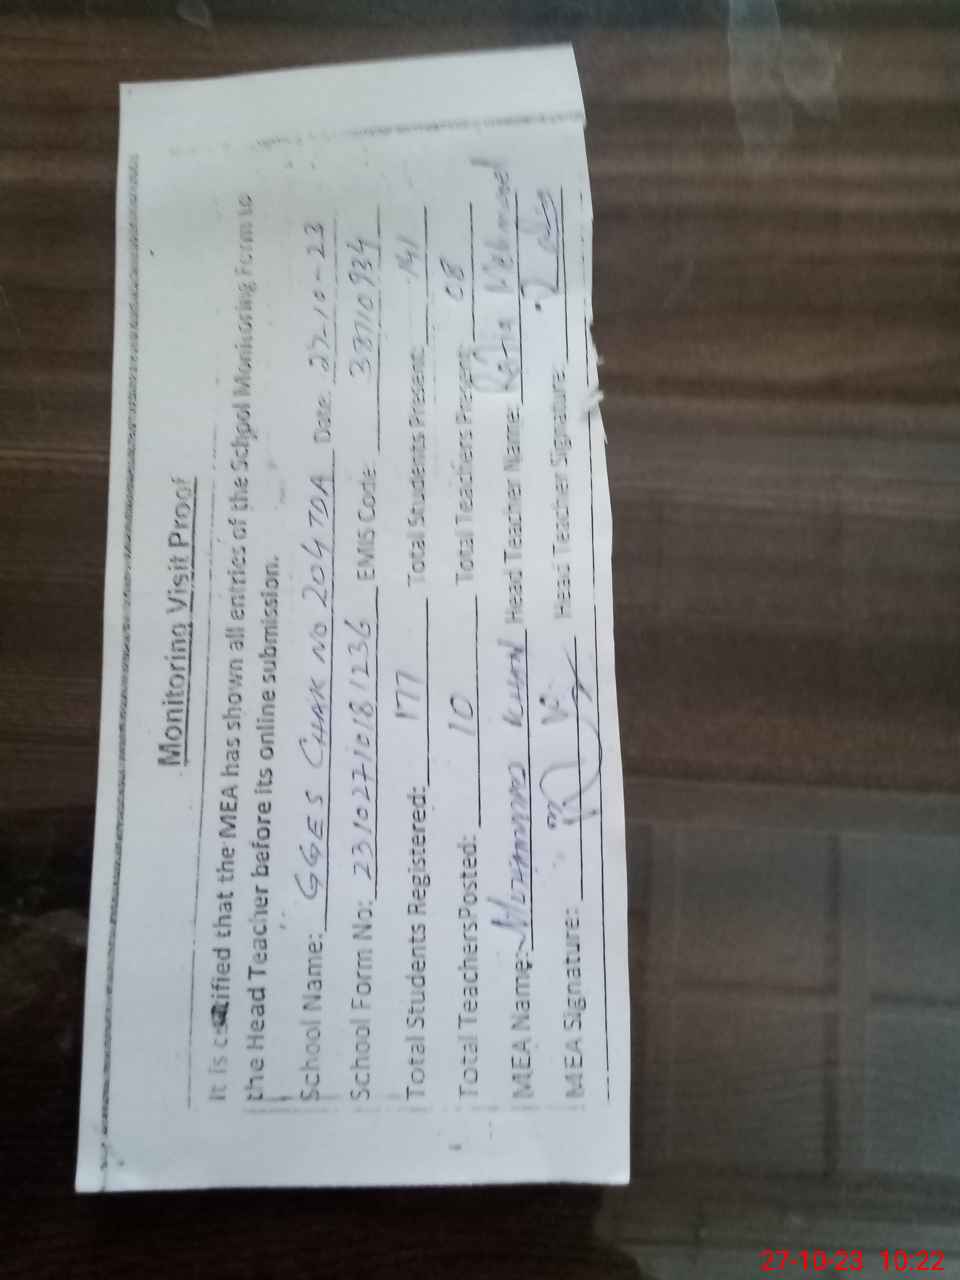 Monitoring Visit Proof
It is certified that the MEA has shown all entries of the School Monitoring Form to
the Head Teacher before its online submission.
School Name: GGES CHAK NO 204 TDA Date: 27-10-23
School Form No: 23102710181236 EMIS Code: 38710934
Total Students Registered: 177 Total Students Present: 141
Total Teachers Posted: 10 Total Teachers Present: 08
MEA Name: MUHAMMAD KHAN Head Teacher Name: Mehmood
MEA Signature: Head Teacher Signature:
27-10-23 10:22